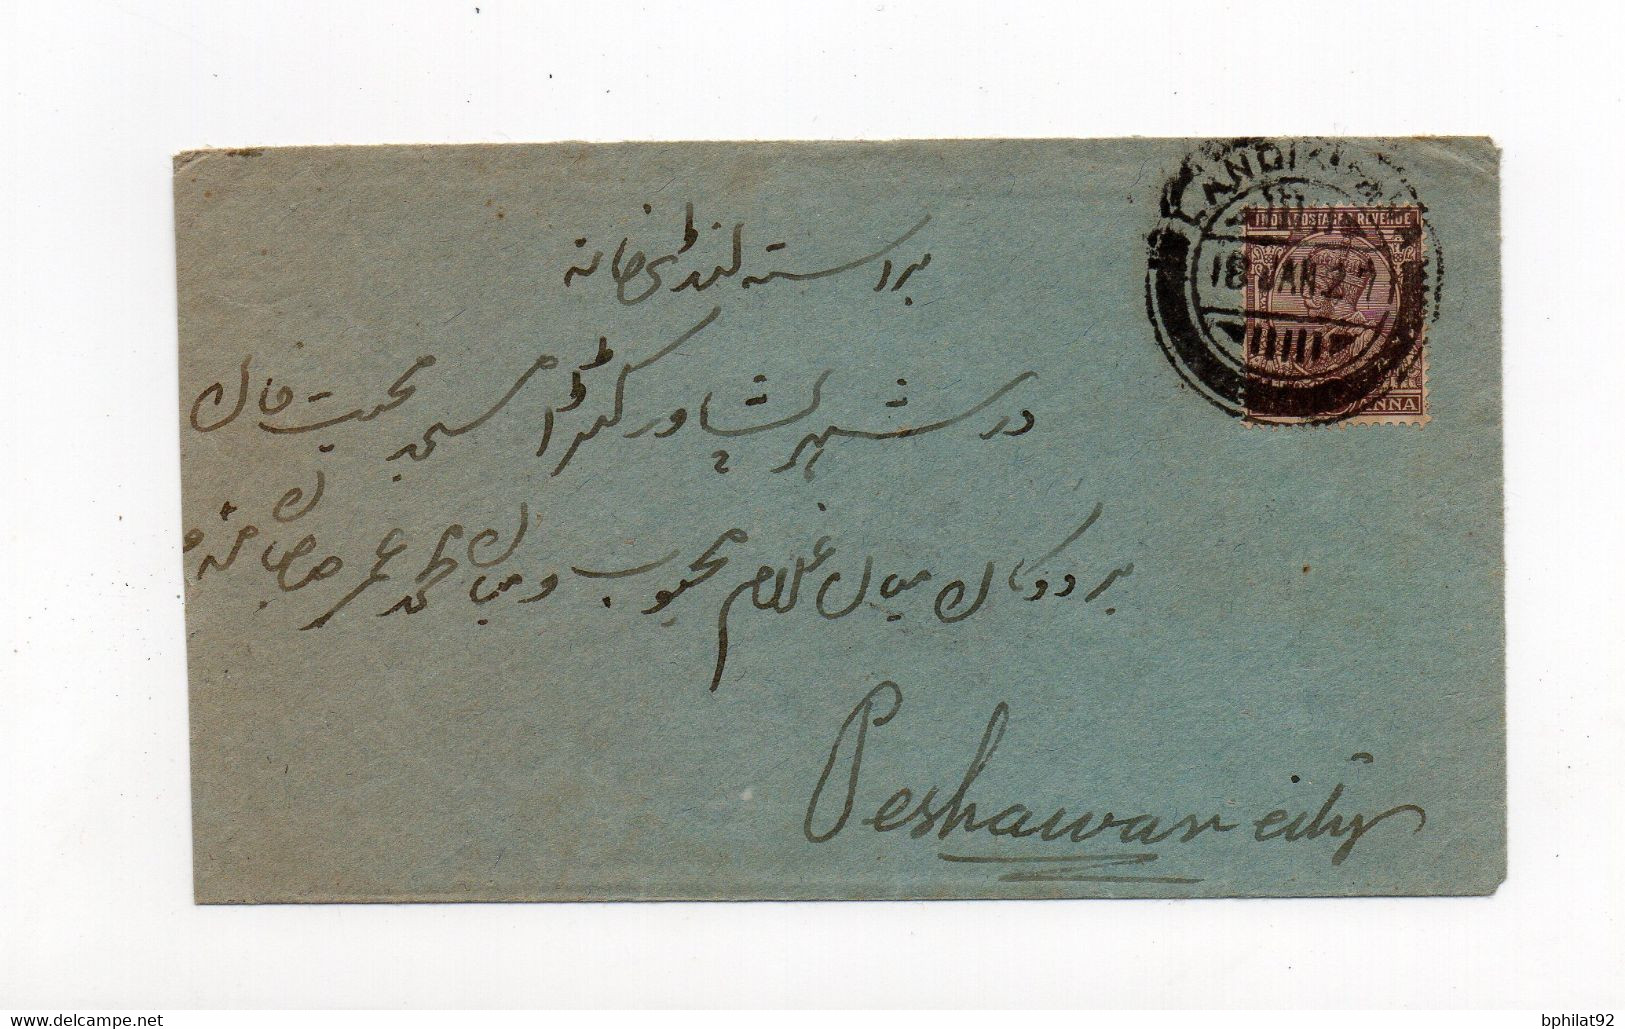 براستہ لنڈیخانہ
در شہر پشاور کٹڑا مسجد محبت خان
بر دوکان میاں غلام محبوب و میاں محمد عمر صاحبان
Peshawar city
LANDIKHANA
18 JAN 27
INDIA POSTAGE & REVENUE
ANNA
www.delcampe.net
bphilat92